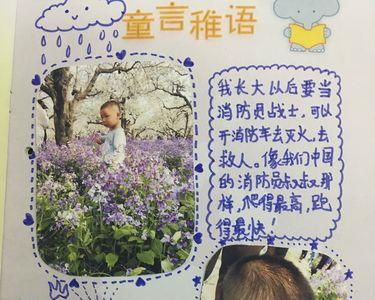 童言稚语
我长大以后要当
消防员战士,可以
开消防车去灭火,去
救人。像我们中国
的消防员叔叔那
样,爬得最高,跑
得最快!